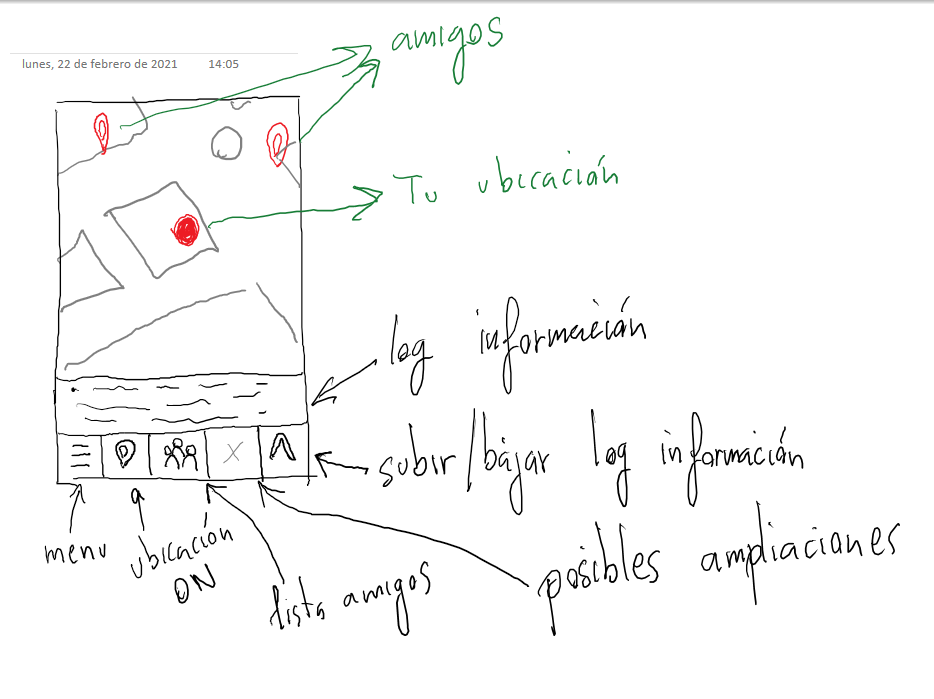 lunes, 22 de febrero de 2021 14:05
amigos
Tu ubicación
log información
subir/bajar log información
menu
ubicación
ON
lista amigos
posibles ampliaciones